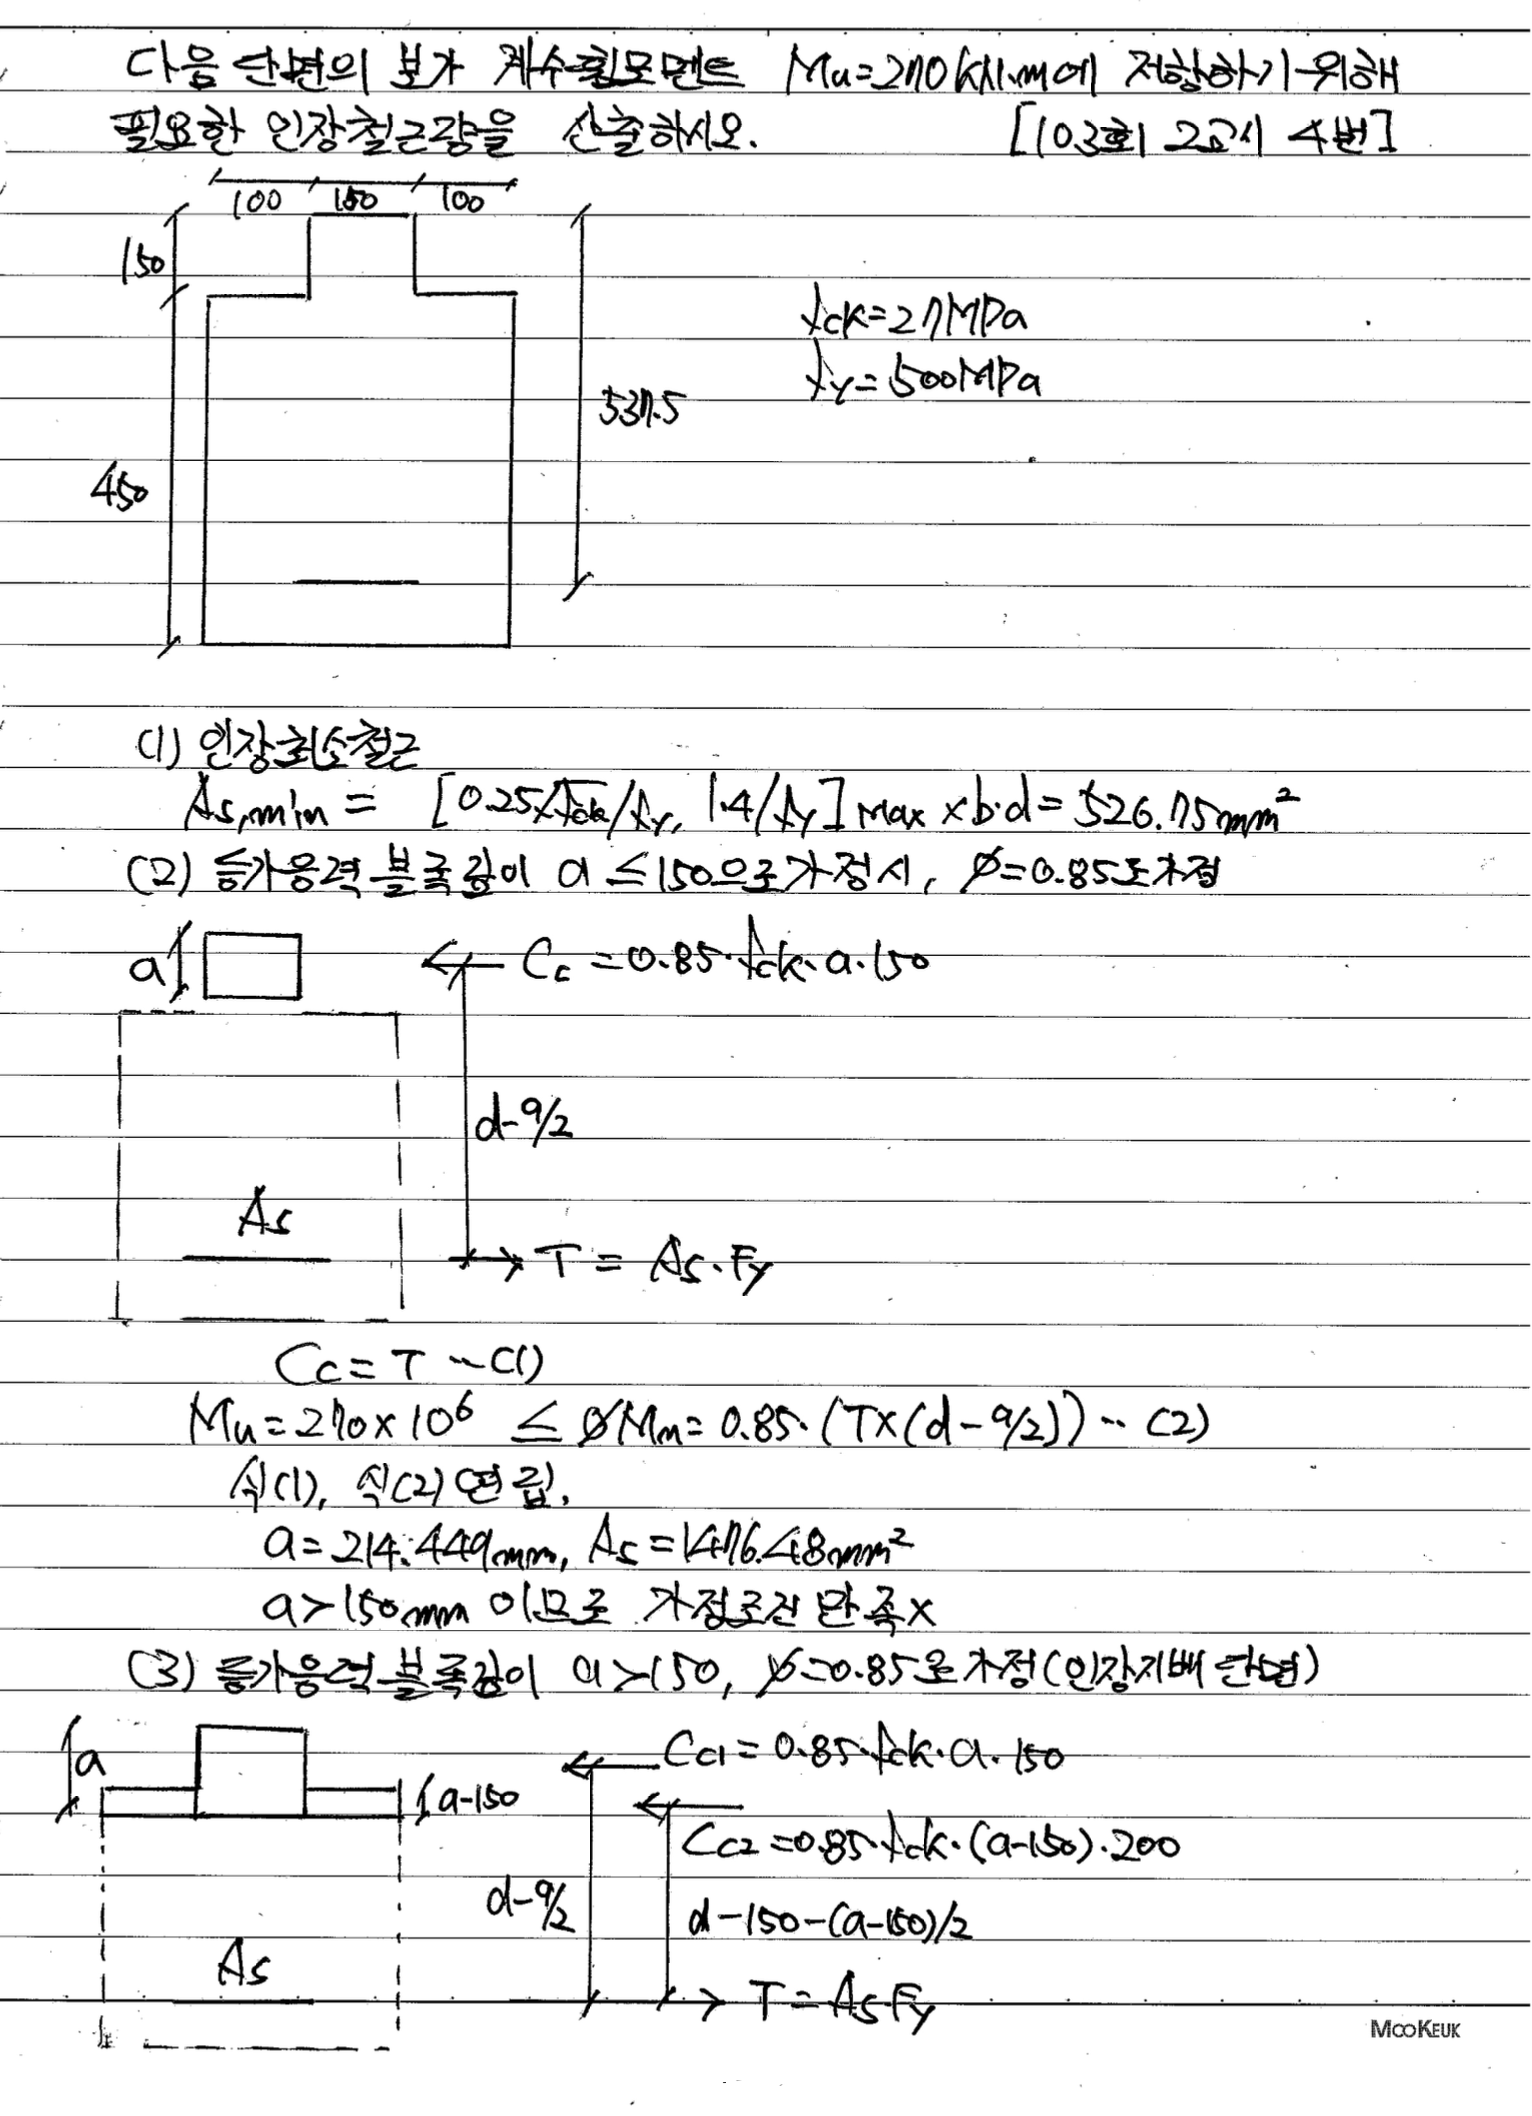 다음 단면의 부가 계수휨모멘트 Mu=270kN.m에 저항하기 위해
필요한 인장철근량을 산출하시오. [103회 2교시 4번]
100 150 100
150
fck=27MPa
fy=500MPa
537.5
450
(1) 인장최소철근
As,min = [0.25√fck/fy, 1.4/fy]max × b·d = 526.75mm²
(2) 등가응력 블록깊이 a ≤150으로 가정시, ø=0.85로 가정
a Cc = 0.85·fck·a·150
d-a/2
As
T = As·Fy
Cc = T …(1)
Mu=270×10⁶ ≤ øMn= 0.85·(T×(d-a/2)) … (2)
식(1), 식(2) 연립.
a=214.449mm, As=1476.48mm²
a>150mm 이므로 가정조건 만족×
(3) 등가응력 블록깊이 a>150, ø=0.85로 가정(인장지배 단면)
a Cc1 = 0.85·fck·a·150
a-150
Cc2 =0.85·fck·(a-150)·200
d-a/2 d-150-(a-150)/2
As
T = As·Fy
MOOKEUK